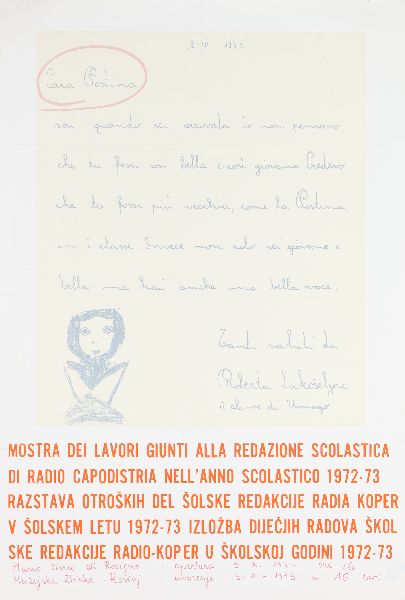 1973
Cara Postina
sai quando sei arrivata io non pensavo
che tu fossi così bella e così giovane Credevo
che tu fossi più vecchia, come la Postina
in i classe. Invece non solo sei giovane e
bella ma hai anche una bella voce.
Tanti saluti da
Roberta
II classe di Umago
MOSTRA DEI LAVORI GIUNTI ALLA REDAZIONE SCOLASTICA
DI RADIO CAPODISTRIA NELL'ANNO SCOLASTICO 1972-73
RAZSTAVA OTROŠKIH DEL ŠOLSKE REDAKCIJE RADIA KOPER
V ŠOLSKEM LETU 1972-73 IZLOŽBA DIJEČJIH RADOVA ŠKOL
SKE REDAKCIJE RADIO-KOPER U ŠKOLSKOJ GODINI 1972-73
Museo Civico di Rovigno - apertura 3. X. 1973 ore 16
Muzejska Zbirka Rovinj - otvorenje 3. X - 1973 u 16 sati